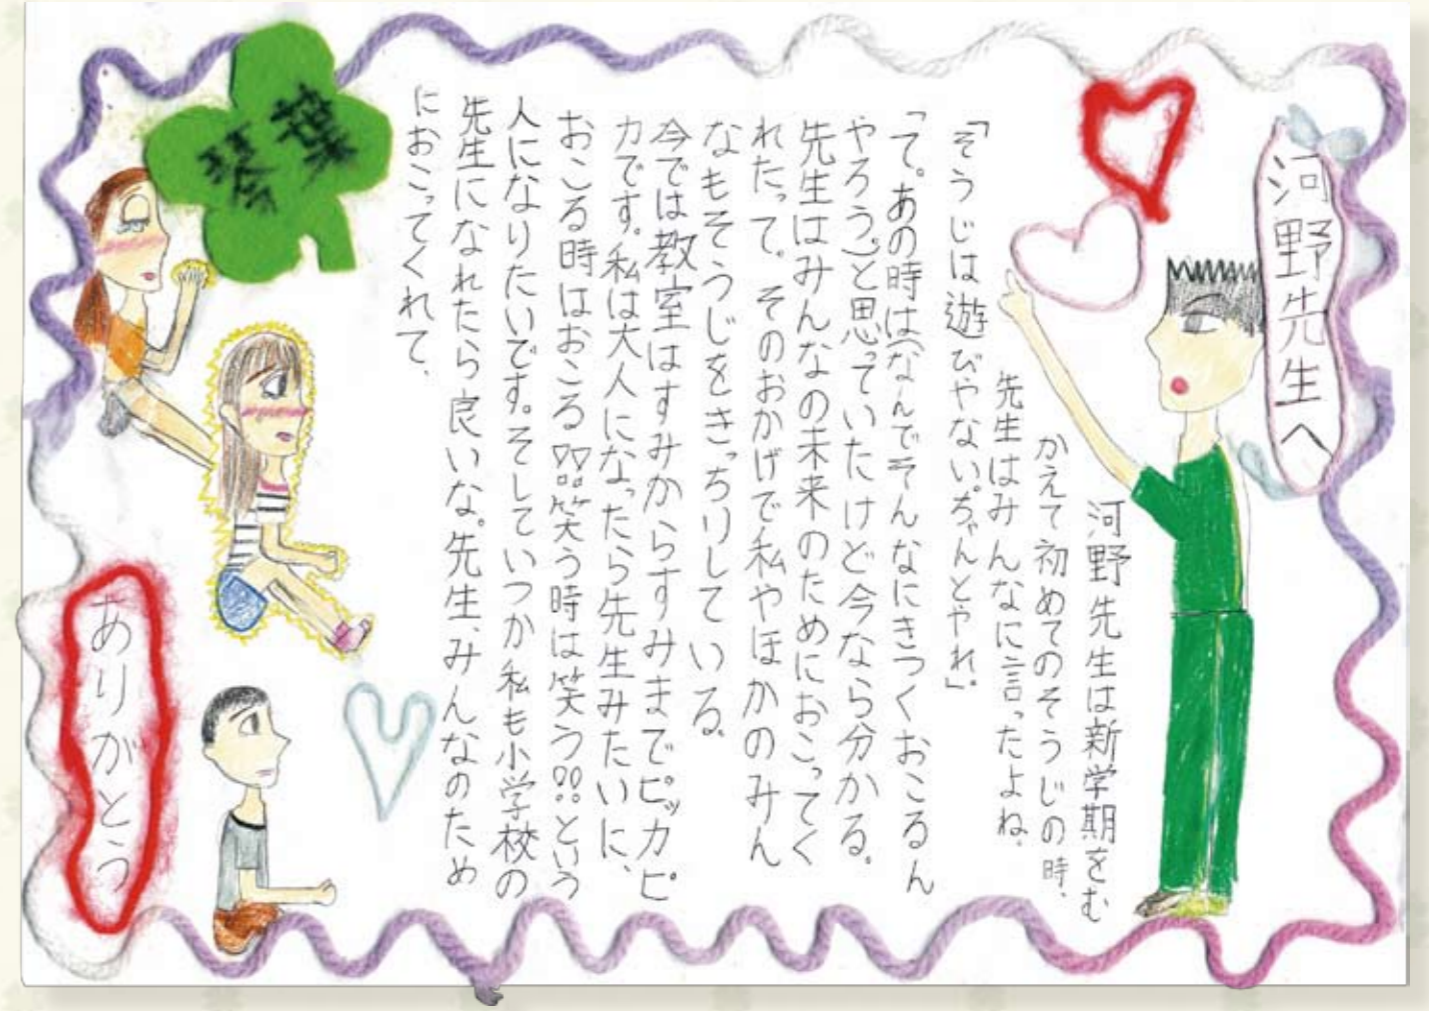 河野先生へ
河野先生は新学期をむ
かえて初めてのそうじの時、
先生はみんなに言ったよね。
「そうじは遊びやない。ちゃんとやれ」。
「て。あの時は(なんでそんなにきつくおこるん
やろう。)と思っていたけど今なら分かる。
先生はみんなの未来のためにおこってく
れたって。そのおかげで私やほかのみん
なもそうじをきっちりしている。
今では教室はすみからすみまでピッカピ
カです。私は大人になったら先生みたいに、
おこる時はおこる!!笑う時は笑う!!という
人になりたいです。そしていつか私も小学校の
先生になれたら良いな。先生、みんなのため
におこってくれて、
琴葉
ありがとう